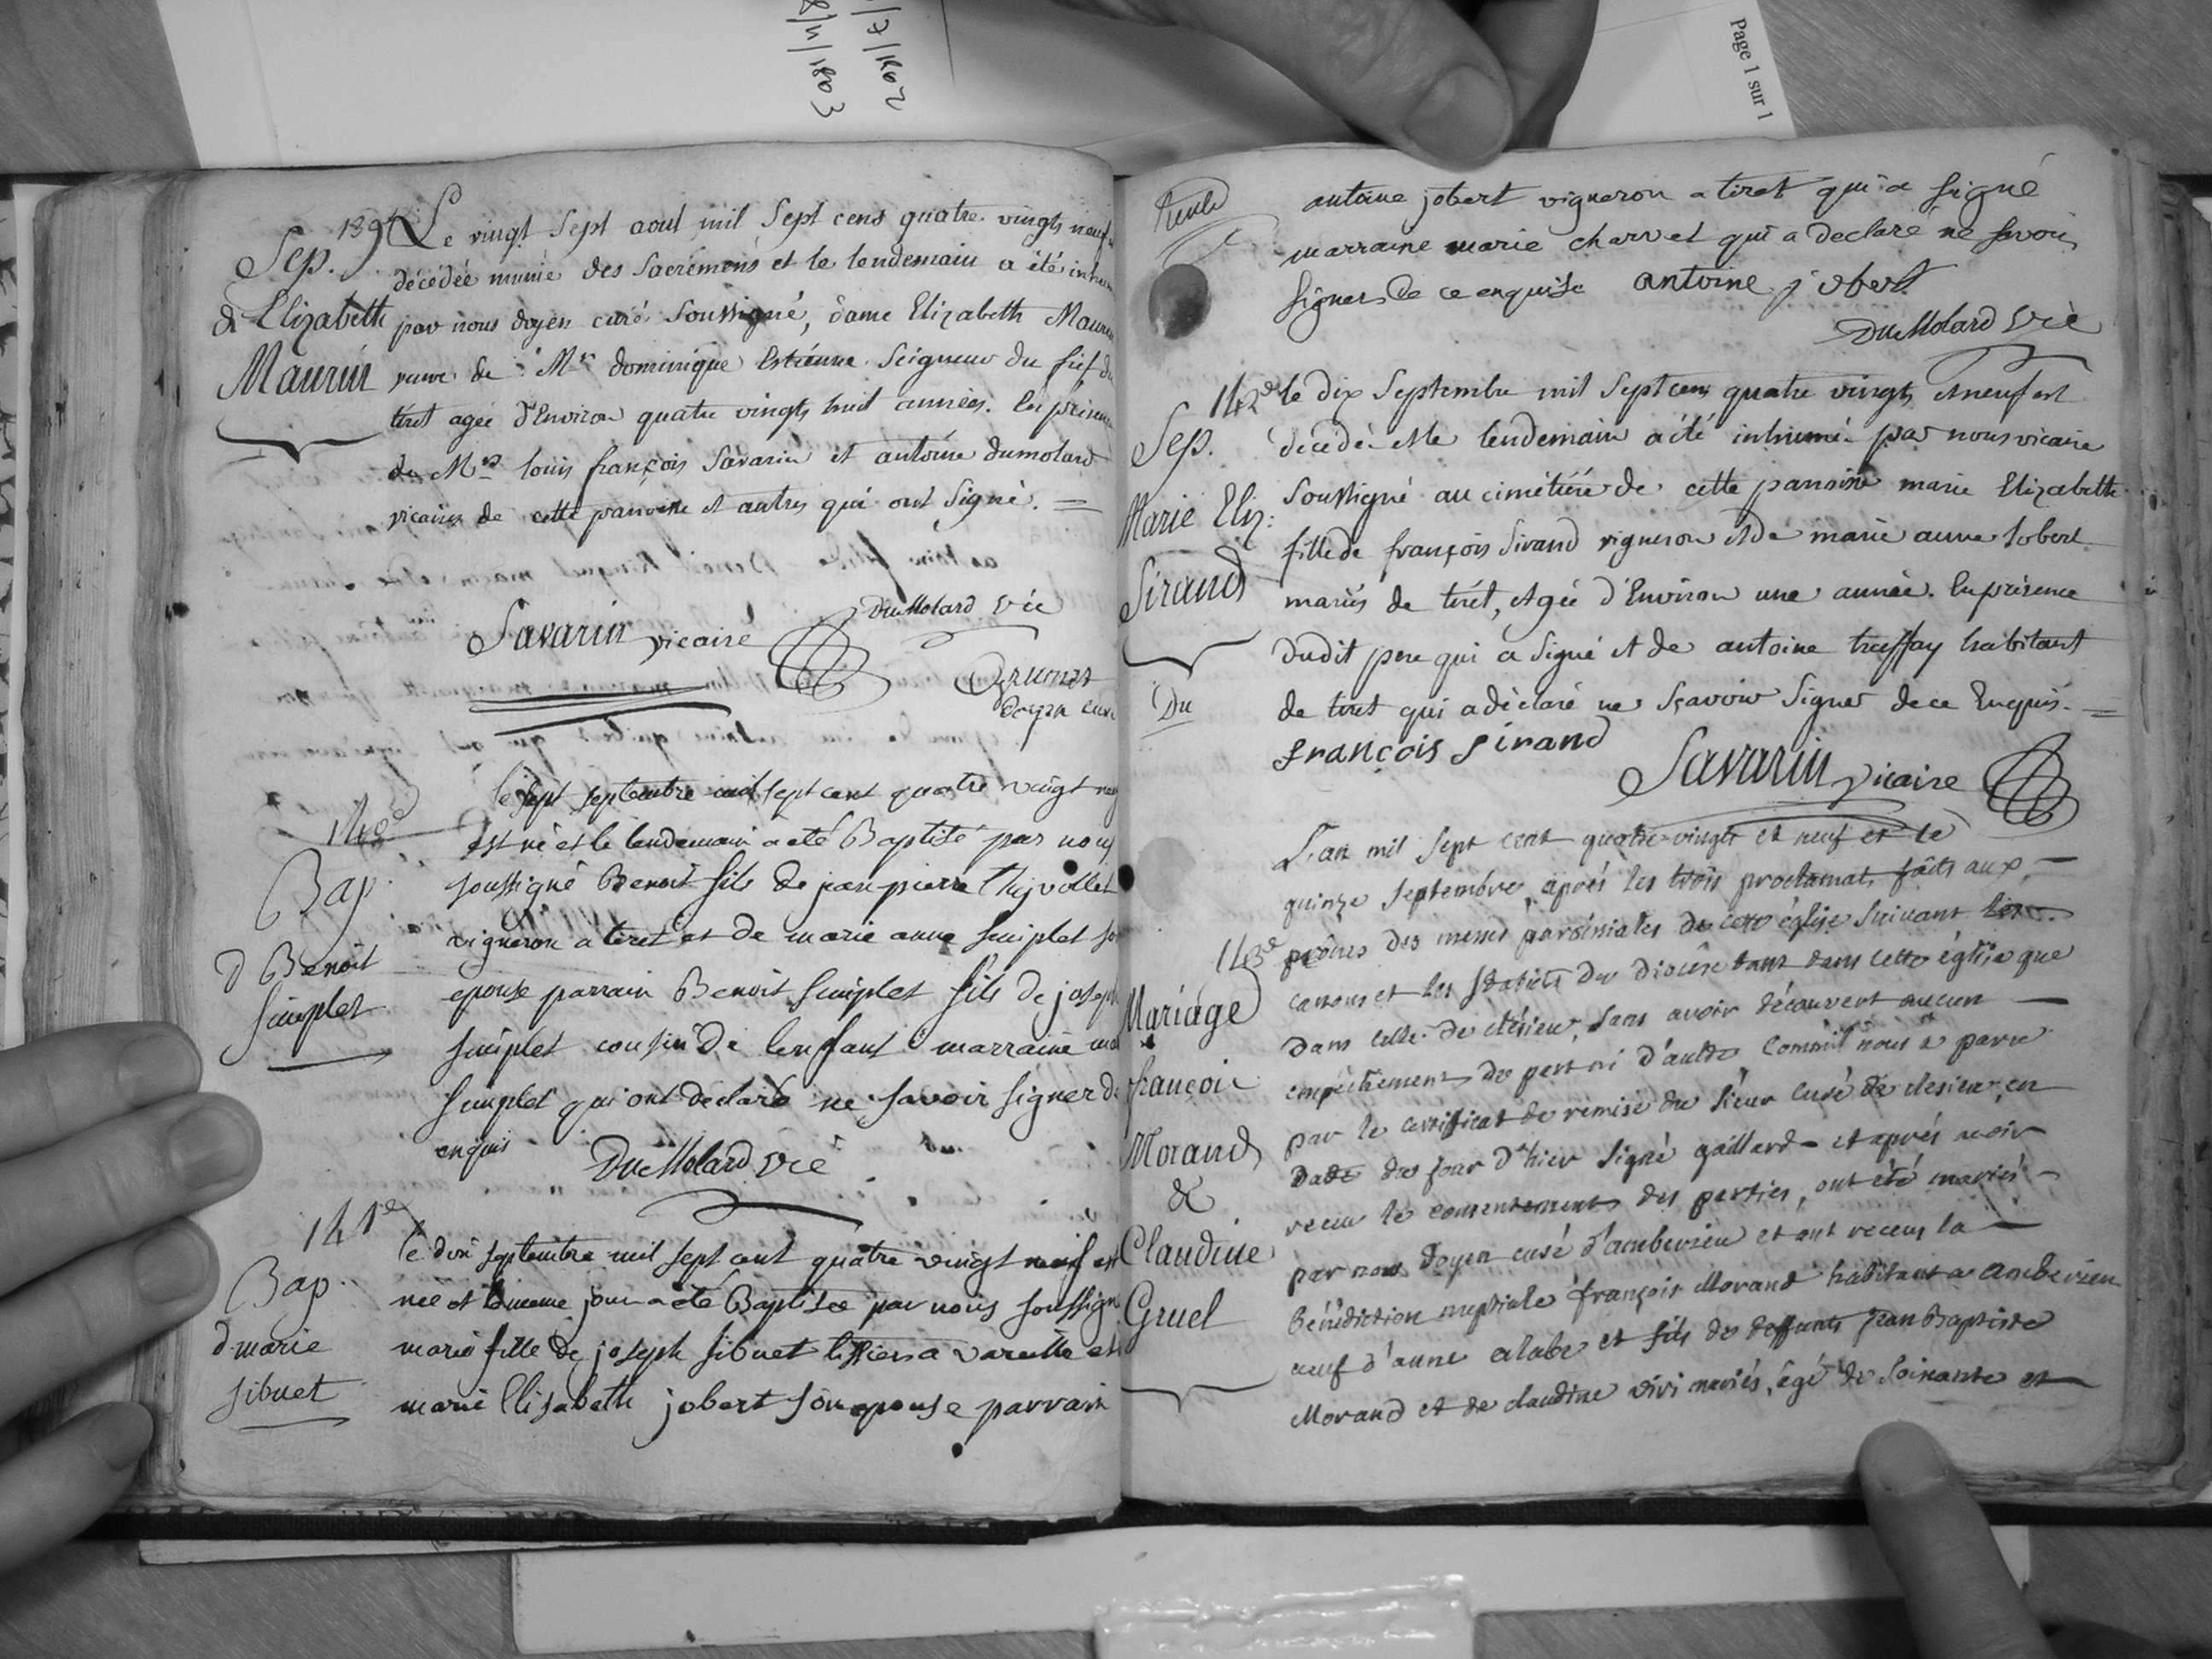 8/11/1803
/7/1802
Page 1 sur 1
139e
Sep.
de Elizabeth
Maurin
Le vingt Sept aout mil Sept cens quatre vingts neuf
décédée munie des Sacremens et le lendemain a été
par nous doyen curé Soussigné, dame Elizabeth
veuve de Mr dominique Estienne Seigneur du fief du
tiret agée d'Environ quatre vingts huit années. En
de Mrs louis françois Savarin et antoine dumolard
vicaires de cette parroisse et autres qui ont Signé. =
Savarin vicaire
DuMolard vic
doyen curé
Bap
d Benoit
Simplet
le sept septembre mil sept cent quatre vingt
est né et le lendemain a eté Baptisé par nous
soussigné Benoit fils de jean pierre
vigneron a tiret et de marie anne
epouse parrain Benoit fils de joseph
cousin de lenfant marraine
qui ont declaré ne savoir signer de
enquis
DuMolard vic
141e
Bap
d marie
sibuet
le dix septembre mil sept cent quatre vingt neuf est
née et le meme jour a eté Baptisée par nous
marie fille de joseph sibuet a vareille et
marie Elisabeth jobert son epouse parrain
antoine jobert vigneron a tiret qui a signé
marraine marie charvet qui a declaré ne savoir
signer de ce enquise antoine jobert
DuMolard vic
142e
Sep.
Marie Eliz:
Sirand
Du
le dix Septembre mil Sept cens quatre vingts et neuf est
décédée et le lendemain a été inhumée par nous vicaire
Soussigné au cimétiére de cette parroisse marie Elizabeth
fille de françois Sirand vigneron et de marie anne Jobert
mariés de tiret, agée d'Environ une année. En présence
dudit pere qui a Signé et de antoine truffay habitant
de tiret qui a déclaré ne Sçavoir Signer de ce Enquis. =
françois sirand
Savarin vicaire
143e
Mariage
françois
Morand
&
Claudine
Gruel
L'an mil Sept cent quatre-vingts et neuf et le
quinze Septembre, après les trois proclamats faits aux
prônes des messes paroissiales de cette église suivant les
canons et les statuts du diocèse tant dans cette église que
dans celle de clésieu, sans avoir découvert aucun
empêchement de part ni d'autre comm'il nous a paru
par le certificat de remise du sieur curé de clesieu, en
date du jour d'hier signé gaillard et après avoir
receu le consentement des parties, ont été mariés
par nous doyen curé d'ambevrieu et ont receus la
bénédiction nuptiale françois Morand habitant a ambevrieu
veuf d'anne et fils des deffunts Jean Baptiste
Morand et de claudine vivi mariés, âgé de soixante et